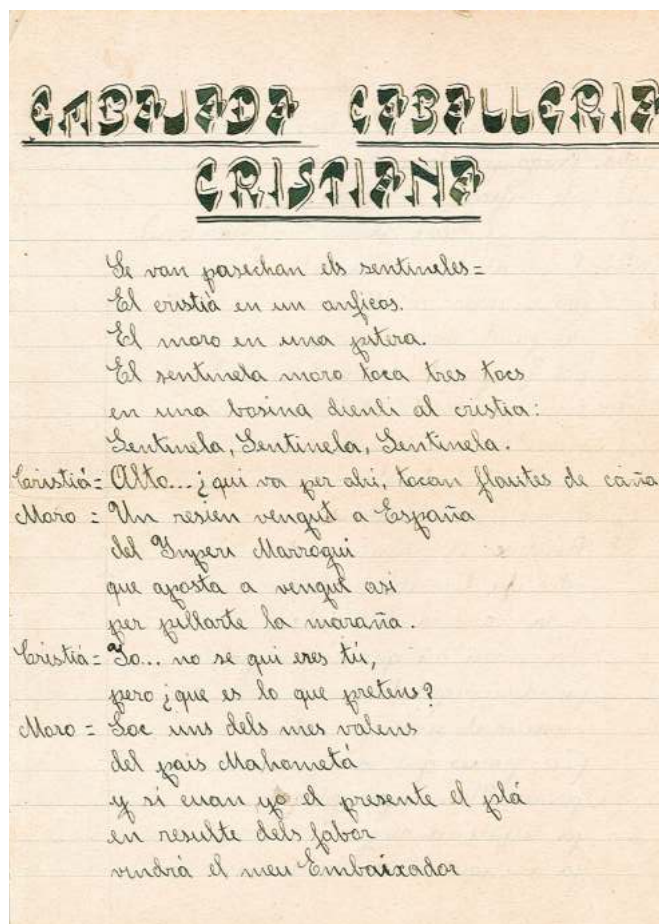 EMBAJADA CABALLERIA
CRISTIANA
Se van pasechan els sentineles=
El cristiá en un anficos.
El moro en una pitera.
El sentinela moro toca tres tocs
en una bosina dienli al cristia:
Sentinela, Sentinela, Sentinela.
Cristiá= Alto... ¿qui va per ahi, tocan flautes de caña
Moro = Un resien vengut a España
del Imperi Marroqui
que aposta a vengut asi
per pillarte la maraña.
Cristiá= Yo... no se qui eres tú,
pero ¿que es lo que pretens?
Moro = Soc uns dels mes valens
del pais Mahometá
y si cuan yo el presente el plá
en resulte dels fabor
vindrá el meu Embaixador